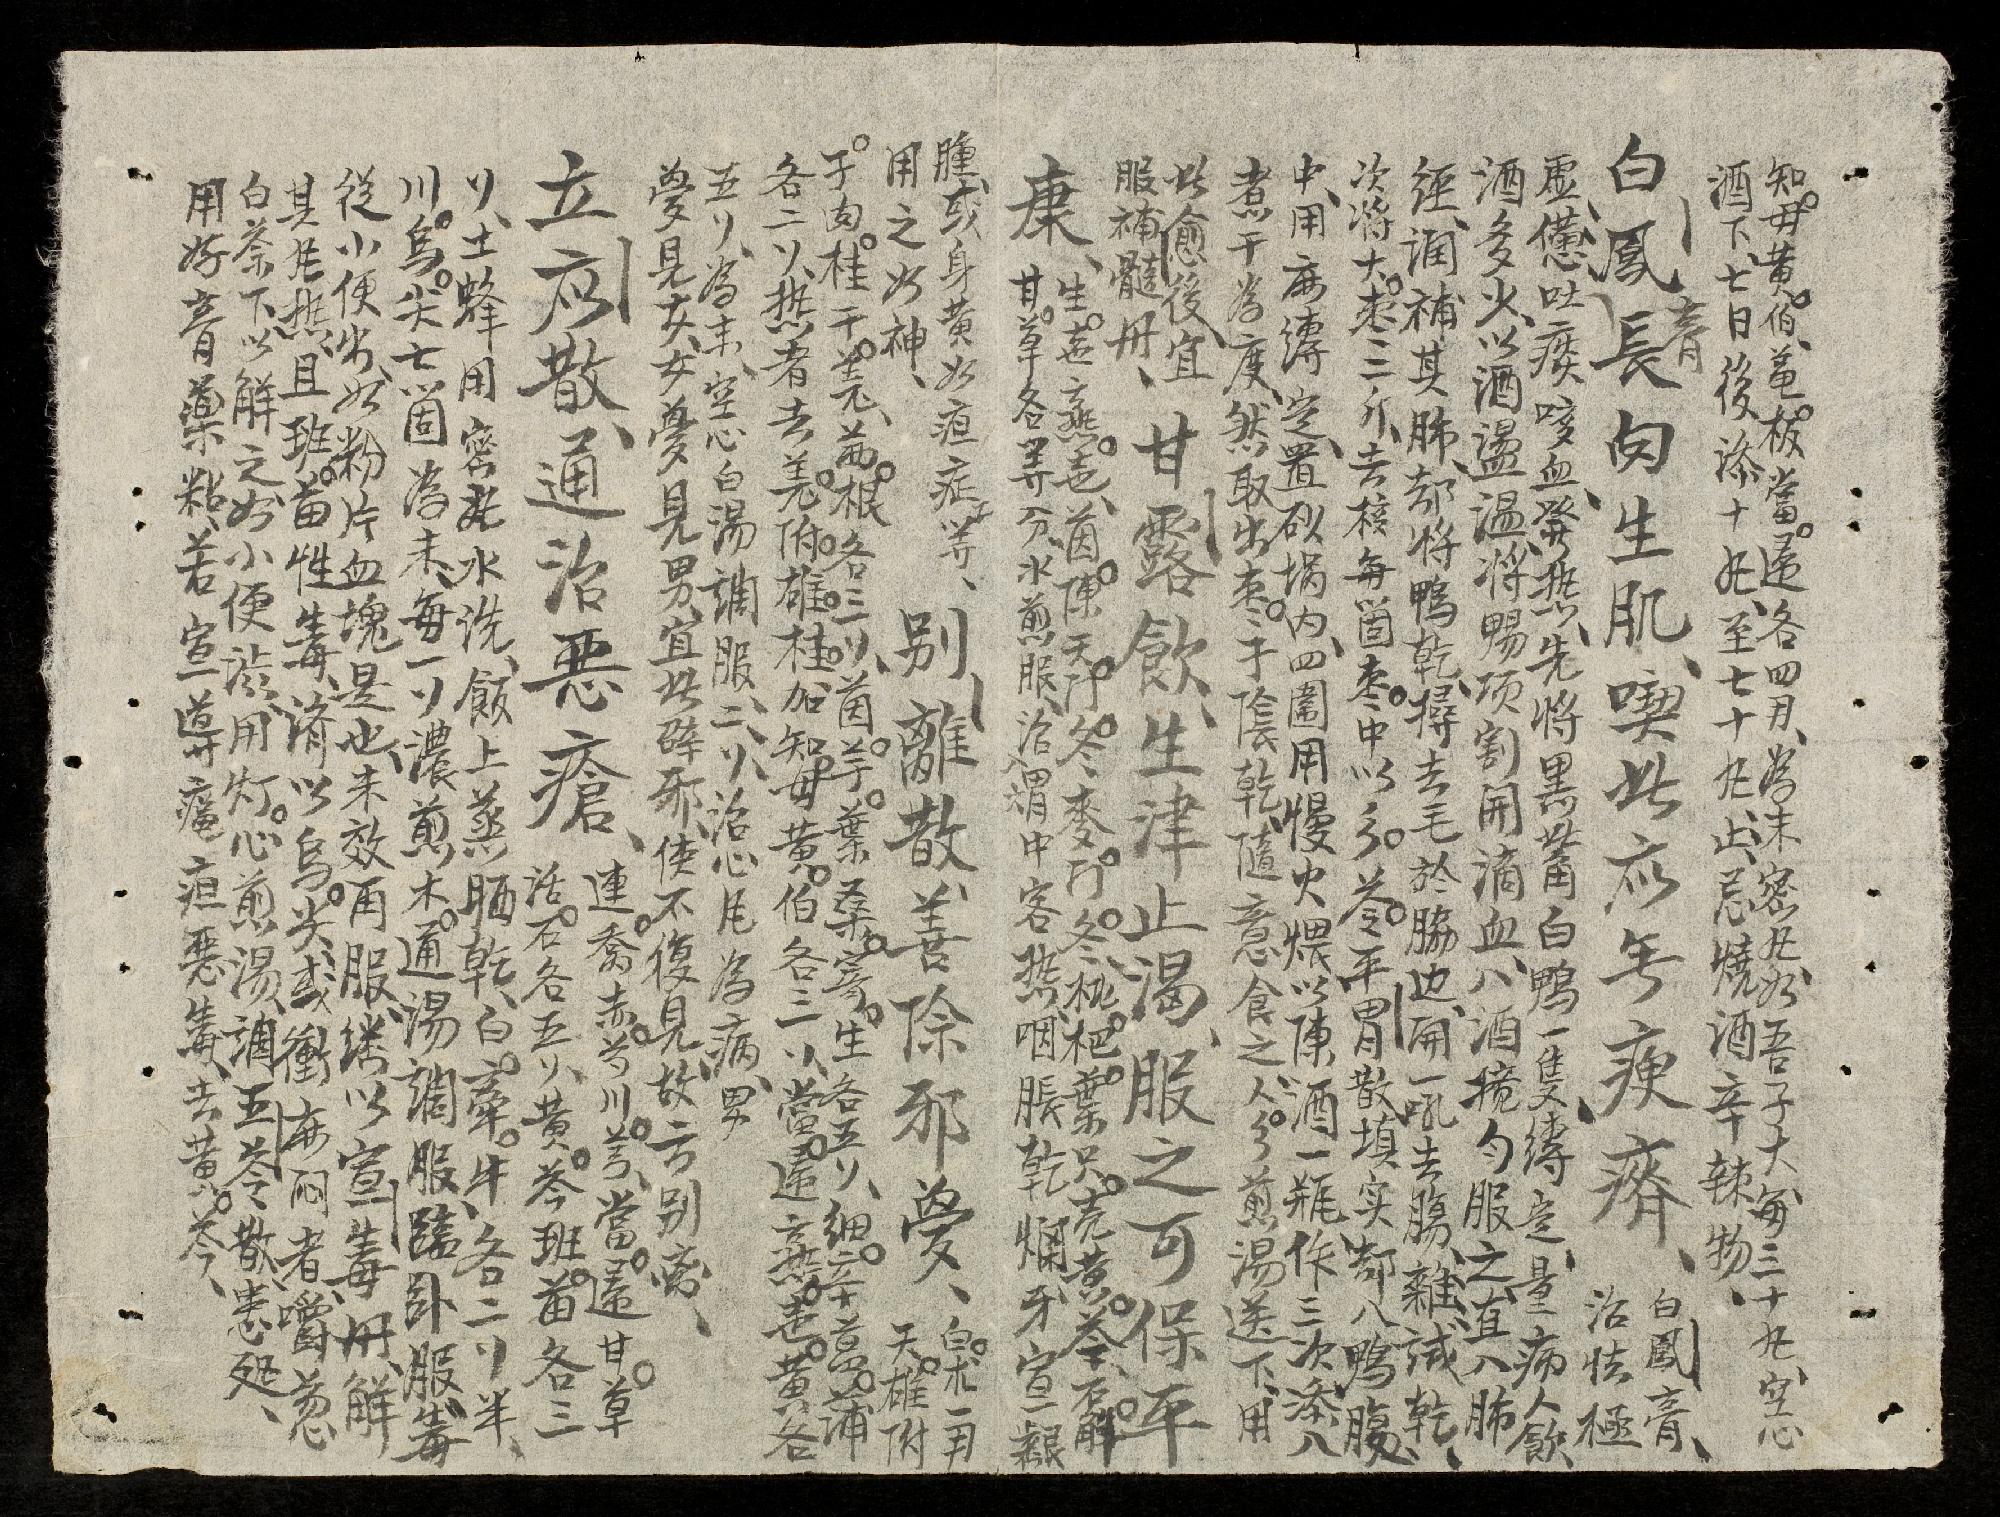 知母黄伯龟板當歸各四月為末密丸如吾子大每三十丸空心
酒下七日後添十丸至七十丸止忌燒酒辛辣物
白鳳膏長肉生肌喫此應無痩瘠
白鳳膏
治怯極
虛憊吐痰咳血發热先將黑嘴白鴨一隻縛定量病人飲
酒多少以酒盪温將鴨项割開滴血入酒搅匀服之直入肺
經调補其肺却将鴨乾撏去毛於脇边開一孔去腸雜拭乾
次將大枣三斤去核每箇枣中以參苓平胃散填实却入鴨腹
中用麻縛定置砂埚内四圍用慢火煨以陳酒一瓶作三次添入
煮干為度然取出枣子陰乾隨意食之人参煎湯送下用
此愈後宜
服補髓丹
甘露飲生津止渴服之可保平
康
生芐熹芐茵陳天门冬麥门冬枇杷葉只壳黄芩石斛
甘草各等分水煎服治胃中客热咽脹乾爛牙宣齦
腫或身黄如疸症等
用之如神
别離散善除邪夢
白术一月
天雄附
子肉桂干姜茜根各三刂茵芋葉桑寄生各五刂細辛菖蒲
各二刂热者去姜附雄桂加知毋黄伯各二刂當歸熹芐黄各
五刂為末空心白湯調服二刂治心尼為病男
夢見女女夢見男宜此辟邪使不復見故云别离
立应散通治恶瘡
連翹赤芍川芎當歸甘草
活石各五刂黄芩班苗各三
刂土蜂用密丸水洗飯上蒸晒乾白牵牛各二刂半
川烏尖七箇為末每一刂濃煎木通湯調服臨卧服毒
從小便出如粉片血塊是也未效再服继以宣毒丹解
其尼热且班苗性毒濟以烏尖或衝麻闷者嚼葱
白茶下以解之如小便澁用灯心煎湯調五苓散患処
用好膏藥粘若宣導瘟疸恶毒去黄芩